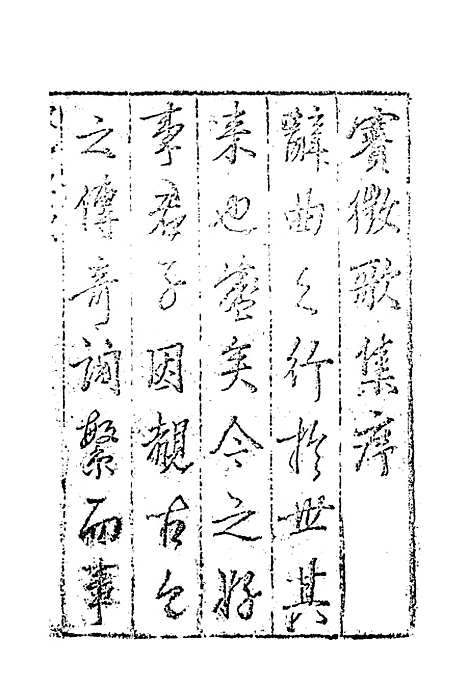 賽徵歌集序
辭曲之行於世其
來也舊矣今之好
事君子因覩古今
之傳奇詞繁而事